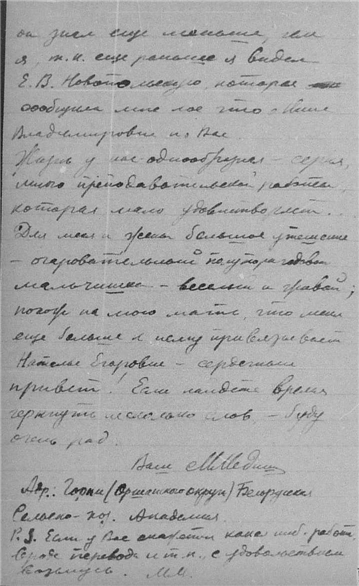 он знал еще меньше, чем
я, т.к. еще раньше я видел
Е.В. Новопольскую, которая
сообщила мне кое что о Нине
Владимировне и о Вас.
Жизнь у нас однообразная – серая,
много преподавательской работы,
которая мало удовлетворяет.
Для меня и жены большое утешение
– очаровательный полуторагодовой
мальчишка – веселый и
похож на мою мать, что меня
еще больше к нему привязывает
Наталье Егоровне – сердечный
привет! Если найдете время
черкнуть несколько слов, – буду
очень рад.
Ваш
Адр: Горки (Оршанского округа) Белорусская
Сельско-хоз. Академия.
P.S. Если у Вас окажется какая нибудь работа
вроде перевода и т.п. с удовольствием
возьмусь. ММ.